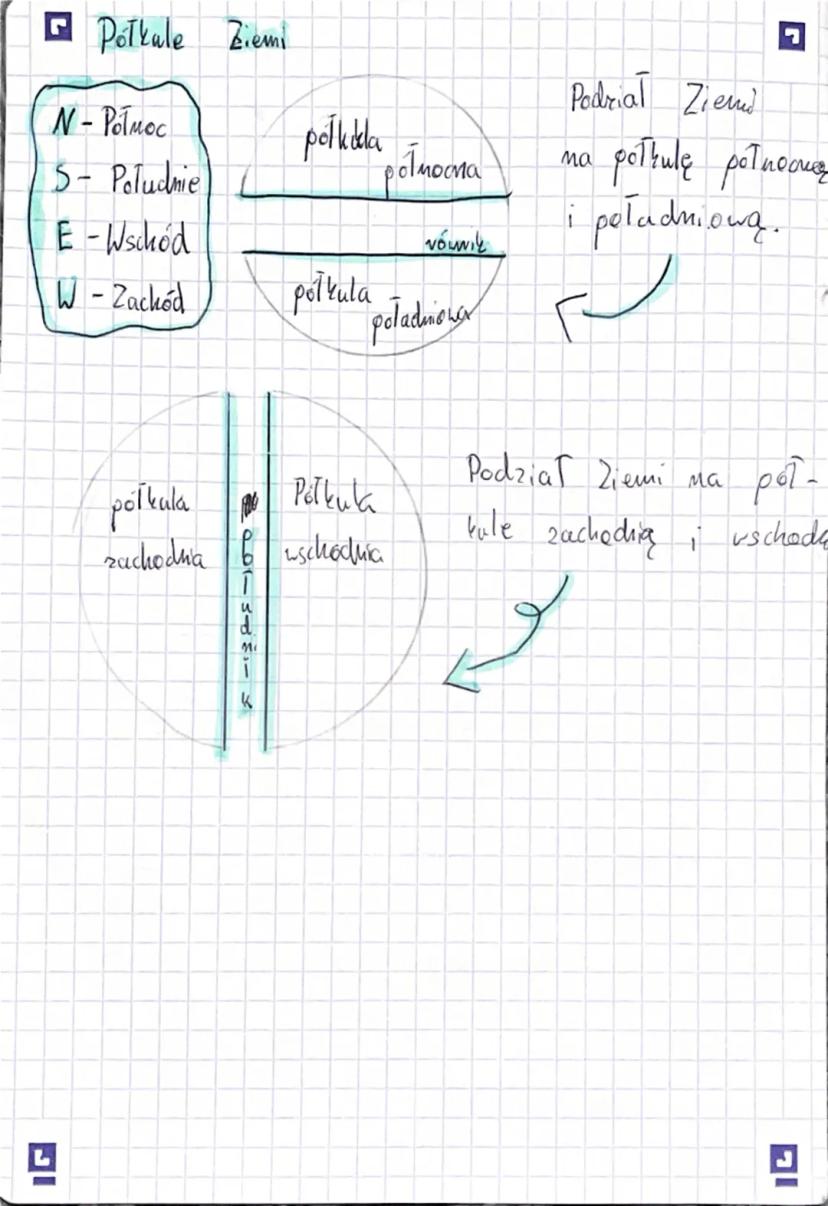 Półkule Ziemi
N - Północ
S - Południe
E - Wschód
W - Zachód
półkula
północna
równik
półkula
południowa
Podział Ziemi
na półkulę północną
i południową.
półkula
zachodnia
południk
Półkula
wschodnia
Podział Ziemi na pół-
kule zachodnią i wschod